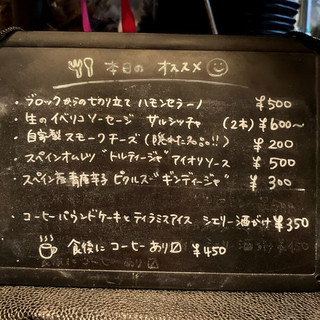 本日の オススメ
・ブロックからの切り立て ハモンセラーノ ¥500
・生のイベリコソーセージ サルシッチャ (2本) ¥600〜
・自家製スモークチーズ (隠れた名品!!) ¥200
・スペインオムレツ "トルティージャ" アイオリソース ¥500
・スペイン産青唐辛子 ピクルス "ギンディージャ" ¥300
・コーヒーパウンドケーキとティラミスアイス シェリー酒がけ ¥350
食後に コーヒーあり〼 ¥450